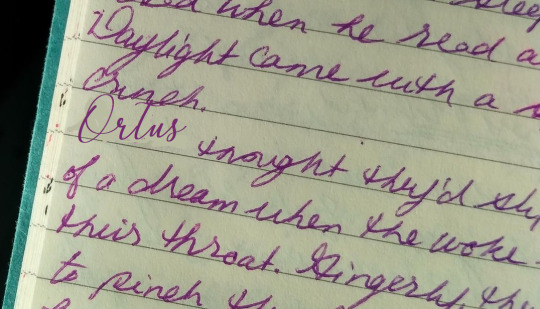 when he read a
Daylight came with a
crunch.
Ortus thought they'd
of a dream when the woke
their throat. Gingerly,
to pinch